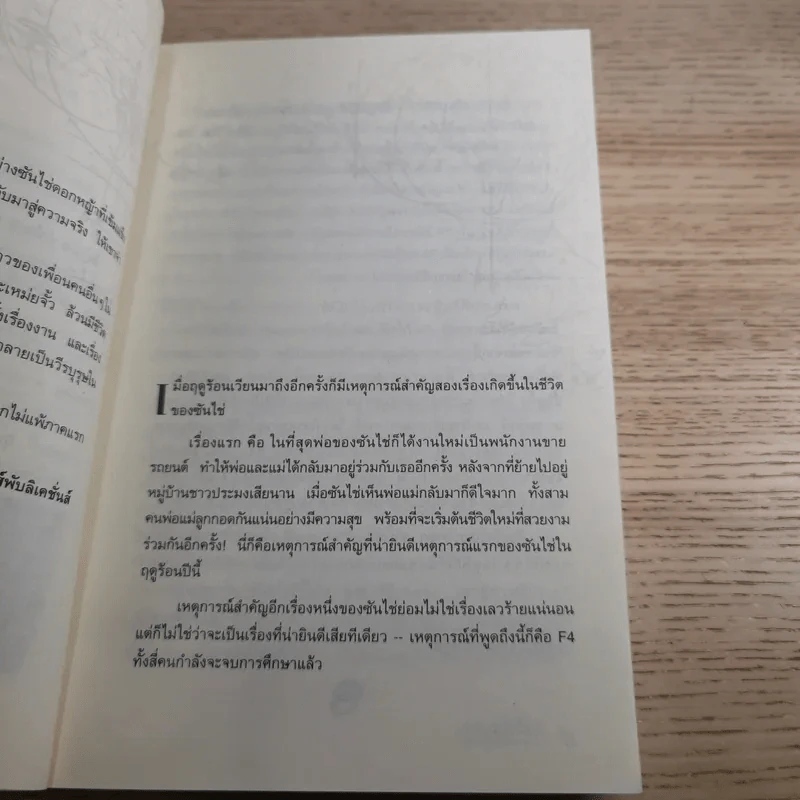 างซันไช่ดอกหญ้าที่เข้ม
ับมาสู่ความจริง ให้เขา
วของเพื่อนคนอื่นๆใน
ะเหม่ยจั้ว ล้วนมีชีวิต
้งเรื่องงาน และเรื่อง
ลายเป็นวีรบุรุษใน
กไม่แพ้ภาคแรก
์พับลิเคชั่นส์
เมื่อฤดูร้อนเวียนมาถึงอีกครั้งก็มีเหตุการณ์สำคัญสองเรื่องเกิดขึ้นในชีวิต
ของซันไช่
เรื่องแรก คือ ในที่สุดพ่อของซันไช่ก็ได้งานใหม่เป็นพนักงานขาย
รถยนต์ ทำให้พ่อและแม่ได้กลับมาอยู่ร่วมกับเธออีกครั้ง หลังจากที่ย้ายไปอยู่
หมู่บ้านชาวประมงเสียนาน เมื่อซันไช่เห็นพ่อแม่กลับมาก็ดีใจมาก ทั้งสาม
คนพ่อแม่ลูกกอดกันแน่นอย่างมีความสุข พร้อมที่จะเริ่มต้นชีวิตใหม่ที่สวยงาม
ร่วมกันอีกครั้ง! นี่ก็คือเหตุการณ์สำคัญที่น่ายินดีเหตุการณ์แรกของซันไช่ใน
ฤดูร้อนปีนี้
เหตุการณ์สำคัญอีกเรื่องหนึ่งของซันไช่ย่อมไม่ใช่เรื่องเลวร้ายแน่นอน
แต่ก็ไม่ใช่ว่าจะเป็นเรื่องที่น่ายินดีเสียทีเดียว -- เหตุการณ์ที่พูดถึงนี้ก็คือ F4
ทั้งสี่คนกำลังจะจบการศึกษาแล้ว